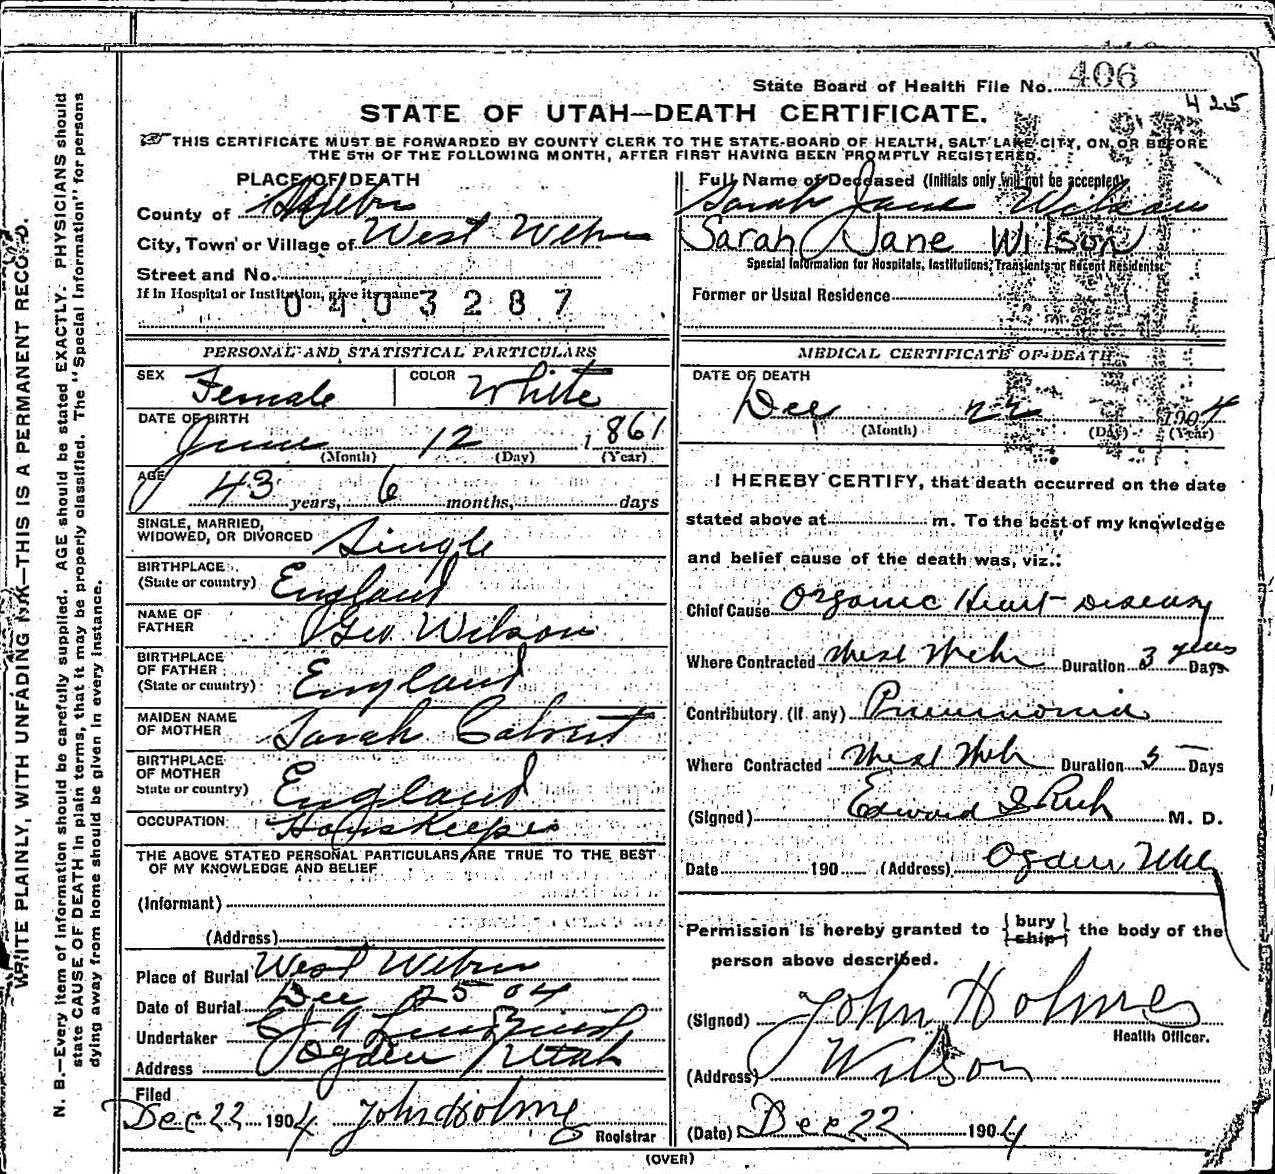 WRITE PLAINLY, WITH UNFADING INK—THIS IS A PERMANENT RECORD.
N. B.—Every item of information should be carefully supplied. AGE should be stated EXACTLY. PHYSICIANS should
state CAUSE OF DEATH in plain terms, that it may be properly classified. The "Special Information" for persons
dying away from home should be given in every instance.
State Board of Health File No. 406
425
STATE OF UTAH—DEATH CERTIFICATE.
THIS CERTIFICATE MUST BE FORWARDED BY COUNTY CLERK TO THE STATE BOARD OF HEALTH, SALT LAKE CITY, ON OR BEFORE
THE 5TH OF THE FOLLOWING MONTH, AFTER FIRST HAVING BEEN PROMPTLY REGISTERED.
PLACE OF DEATH
County of Weber
City, Town or Village of West Weber
Street and No.
If in Hospital or Institution, give its name
0403287
Full Name of Deceased (Initials only will not be accepted)
Sarah Jane Wilson
Sarah Jane Wilson
Special Information for Hospitals, Institutions, Transients or Recent Residents
Former or Usual Residence
PERSONAL AND STATISTICAL PARTICULARS
SEX Female COLOR White
DATE OF BIRTH
June 12 1861
(Month) (Day) (Year)
AGE
43 years, 6 months, days
SINGLE, MARRIED,
WIDOWED, OR DIVORCED Single
BIRTHPLACE
(State or country) England
NAME OF
FATHER Geo Wilson
BIRTHPLACE
OF FATHER
(State or country) England
MAIDEN NAME
OF MOTHER Sarah Calvert
BIRTHPLACE
OF MOTHER
State or country) England
OCCUPATION Houskeeper
THE ABOVE STATED PERSONAL PARTICULARS ARE TRUE TO THE BEST
OF MY KNOWLEDGE AND BELIEF
(Informant)
(Address)
Place of Burial West Weber
Date of Burial Dec 25 04
Undertaker
Address Ogden Utah
Filed
Dec 22 1904 John Holmes
Registrar
MEDICAL CERTIFICATE OF DEATH
DATE OF DEATH
Dec 22 1904
(Month) (Day) (Year)
I HEREBY CERTIFY, that death occurred on the date
stated above at m. To the best of my knowledge
and belief cause of the death was, viz.:
Chief Cause Organic Heart Disease
Where Contracted West Weber Duration 3 years Days
Contributory (If any) Pneumonia
Where Contracted West Weber Duration 5 Days
(Signed) Edward I Rich M. D.
Date 190 (Address) Ogden Utah
Permission is hereby granted to {bury ship} the body of the
person above described.
(Signed) John Holmes
Health Officer.
(Address) Wilson
(Date) Dec 22 1904
(OVER)